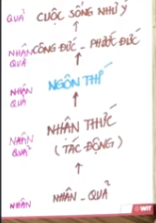 QUẢ CUỘC SỐNG NHƯ Ý
NHÂN QUẢ CÔNG ĐỨC - PHƯỚC ĐỨC
NHÂN QUẢ NGÔN THÍ
NHÂN QUẢ NHÂN THỨC
(TÁC ĐỘNG)
NHÂN NHÂN - QUẢ